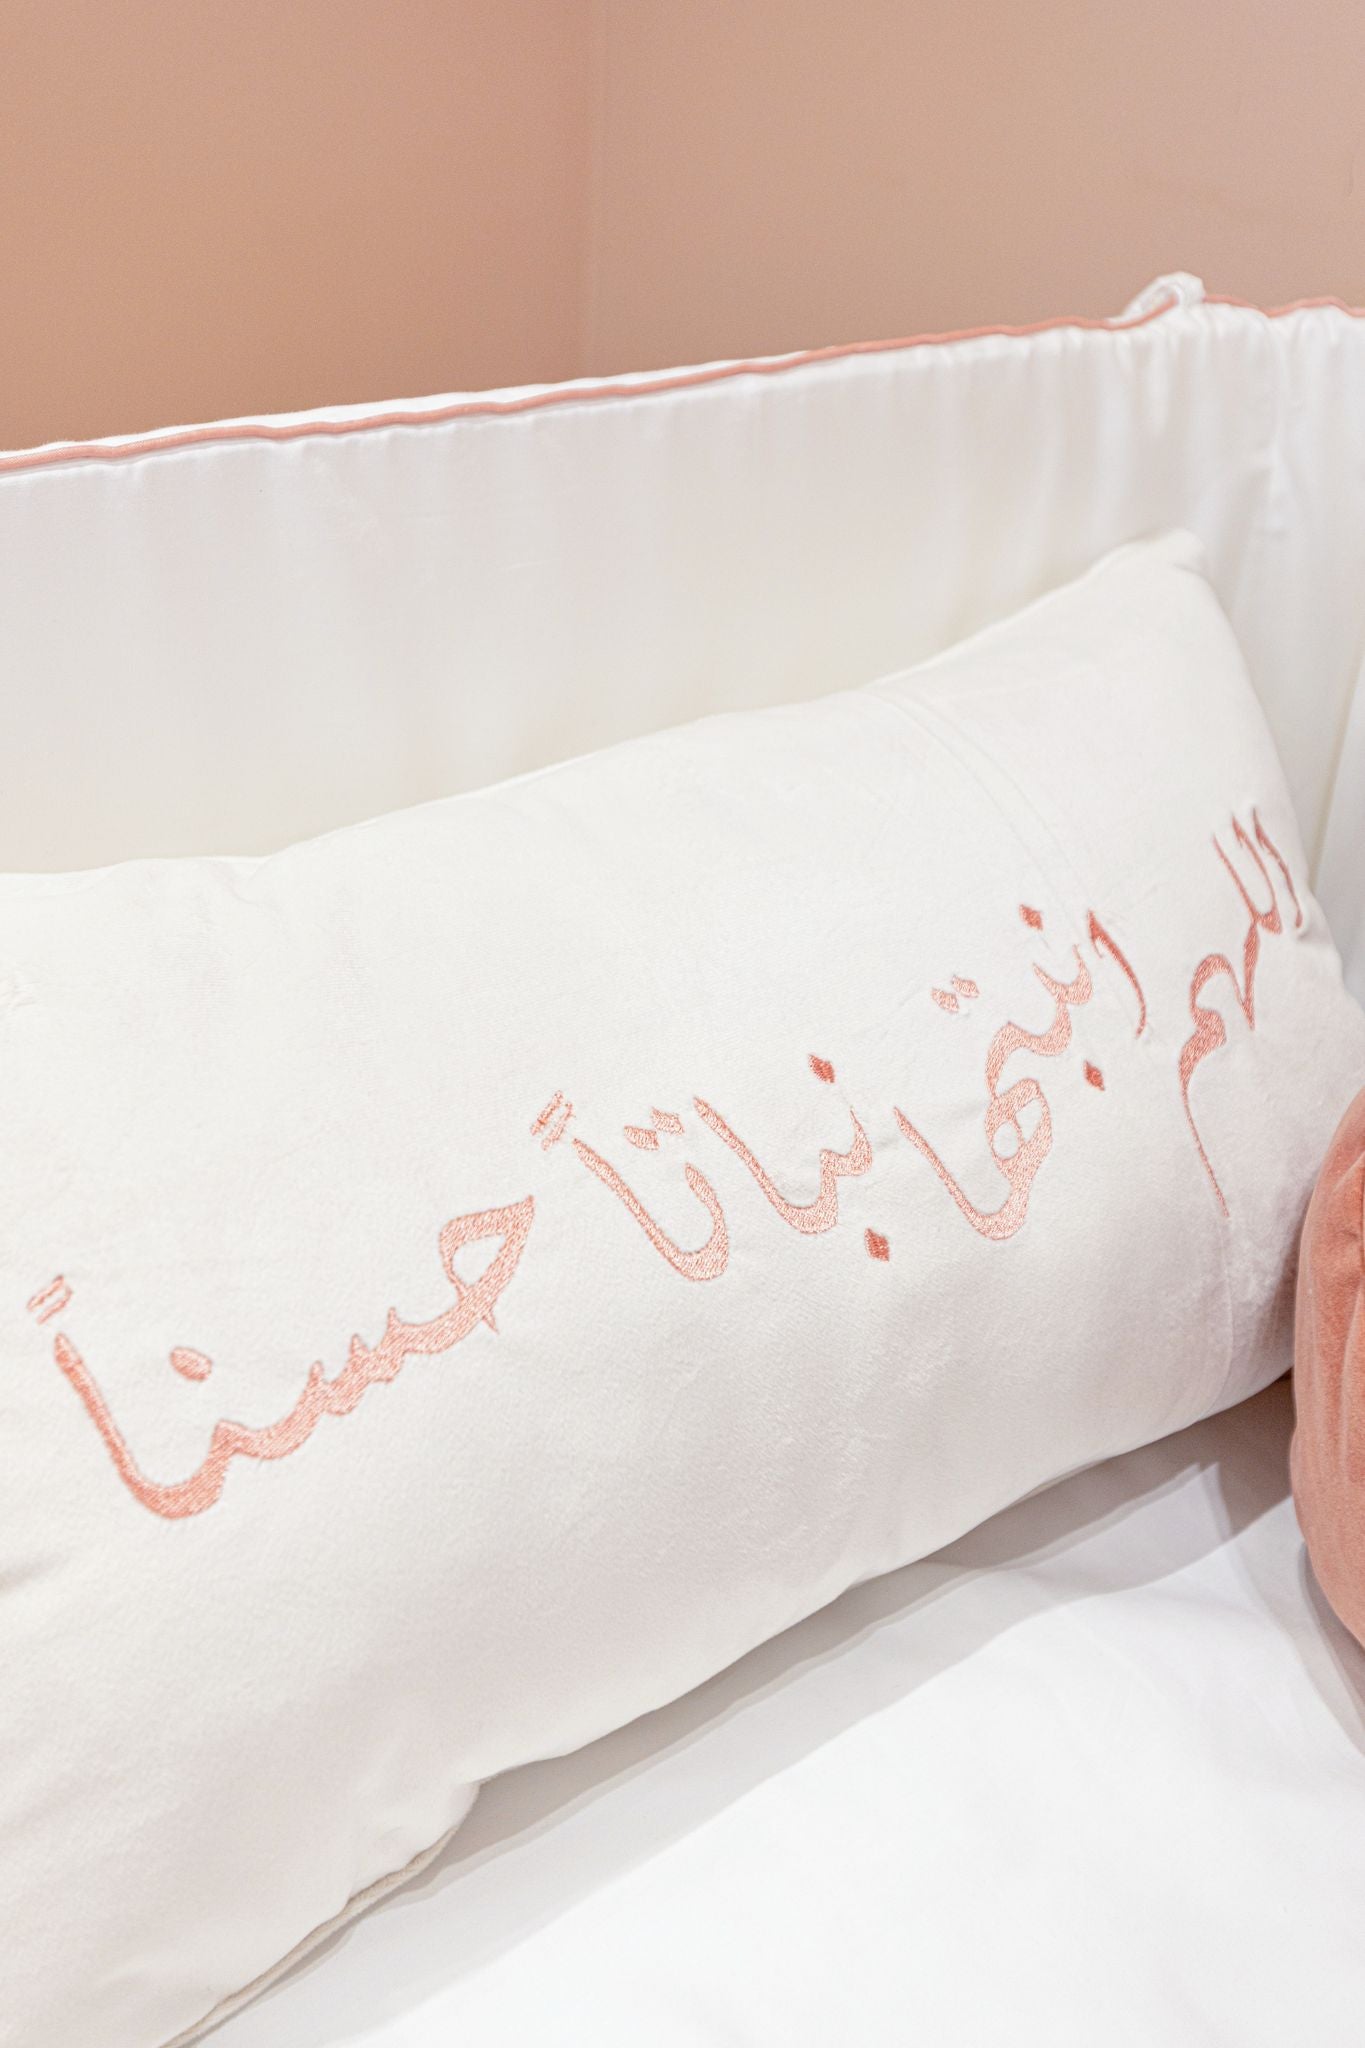 اللهم انبتها نباتاً حسناً